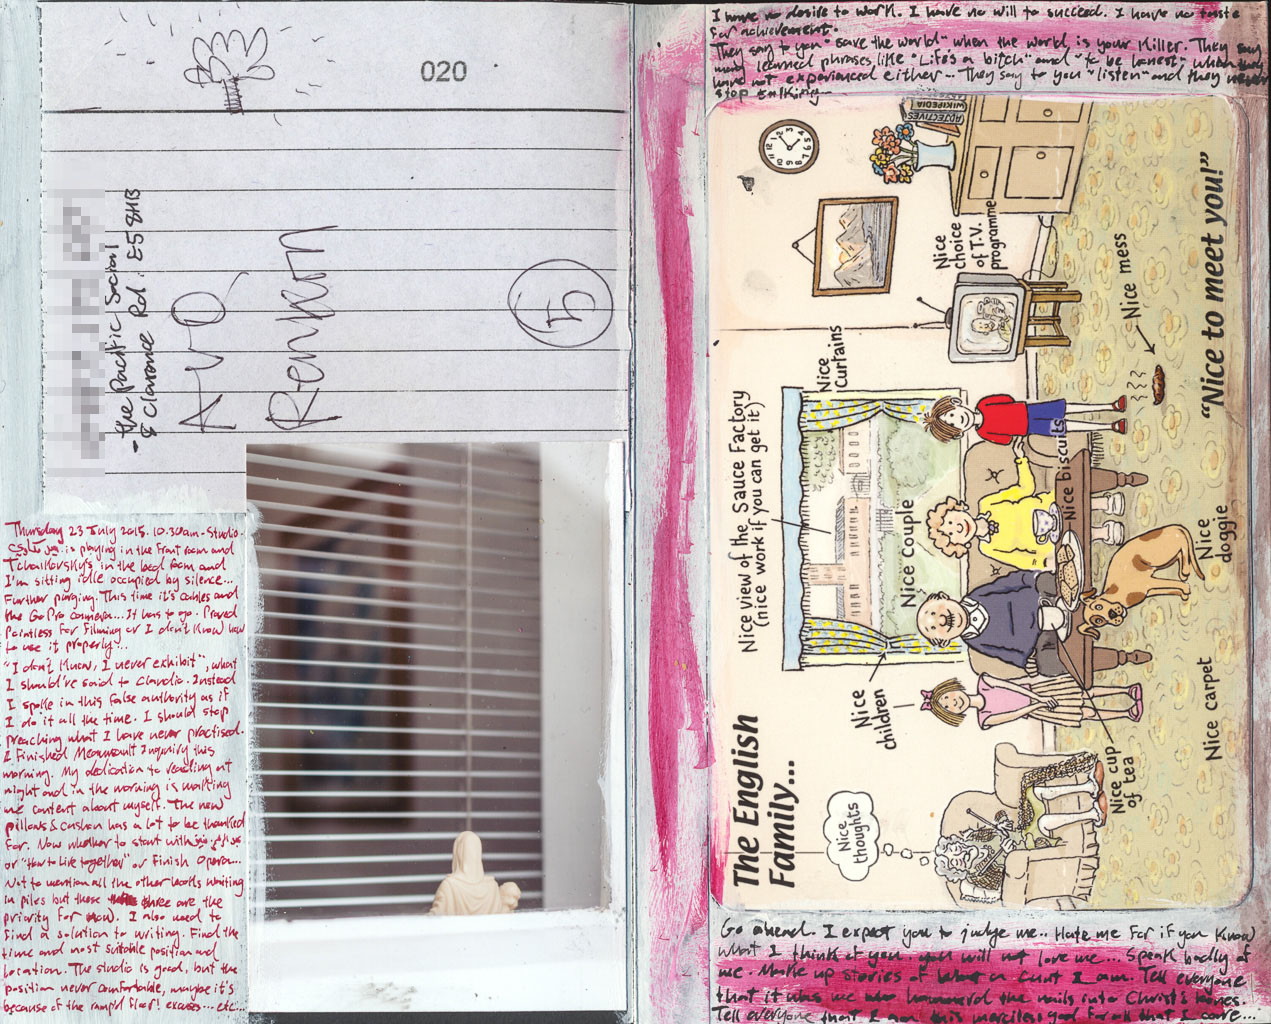 020
- the Pacific Social
8 Clarence Rd. E5 8HB
AVO
5
Thursday 23 July 2015. 10.30am - Studio.
is playing in the front room and
Tchaikovsky's in the back room and
I'm sitting idle occupied by silence...
Further purging. This time it's cables and
the GoPro camera... It has to go. Proved
pointless for filming or I don't know how
to use it properly...
"I don't know, I never exhibit", what
I should've said to Claudio. Instead
I spoke in this false authority as if
I do it all the time. I should stop
preaching what I have never practised.
I finished Meursault Inquiry this
morning. My dedication to reading at
night and in the morning is making
me content about myself. The new
pillows & cushon has a lot to be thanked
for. Now whether to start with
or "How to Live together" or finish Opera...
Not to mention all the other books waiting
in piles but these three are the
priority for now. I also need to
find a solution to writing. Find the
time and most suitable position and
location. The studio is good, but the
position never comfortable, maybe it's
because of the floor! excuses... etc...
I have no desire to work. I have no will to succeed. I have no taste
for achievement.
They say to you "save the world" when the world is your killer. They say
many learned phrases like "Life's a bitch" and "to be honest" when they
have not experienced either... They say to you "listen" and they never
stop talking...
The English
Family...
Nice
thoughts
Nice view of the Sauce Factory
(nice work if you can get it)
Nice
Curtains
Nice
choice
of T.V.
programme
ADJECTIVES
WIKIPEDIA
Nice couple
Nice
children
Nice biscuits
Nice cup
of tea
Nice
doggie
Nice mess
Nice carpet
"Nice to meet you!"
Go ahead. I expect you to judge me.. Hate me for if you know
what I think of you. you will not love me... Speak badly of
me. Make up stories of what a cunt I am. Tell everyone
that it was me who hammered the nails into Christ's bones.
Tell everyone that I am this merciless god for all that I care...